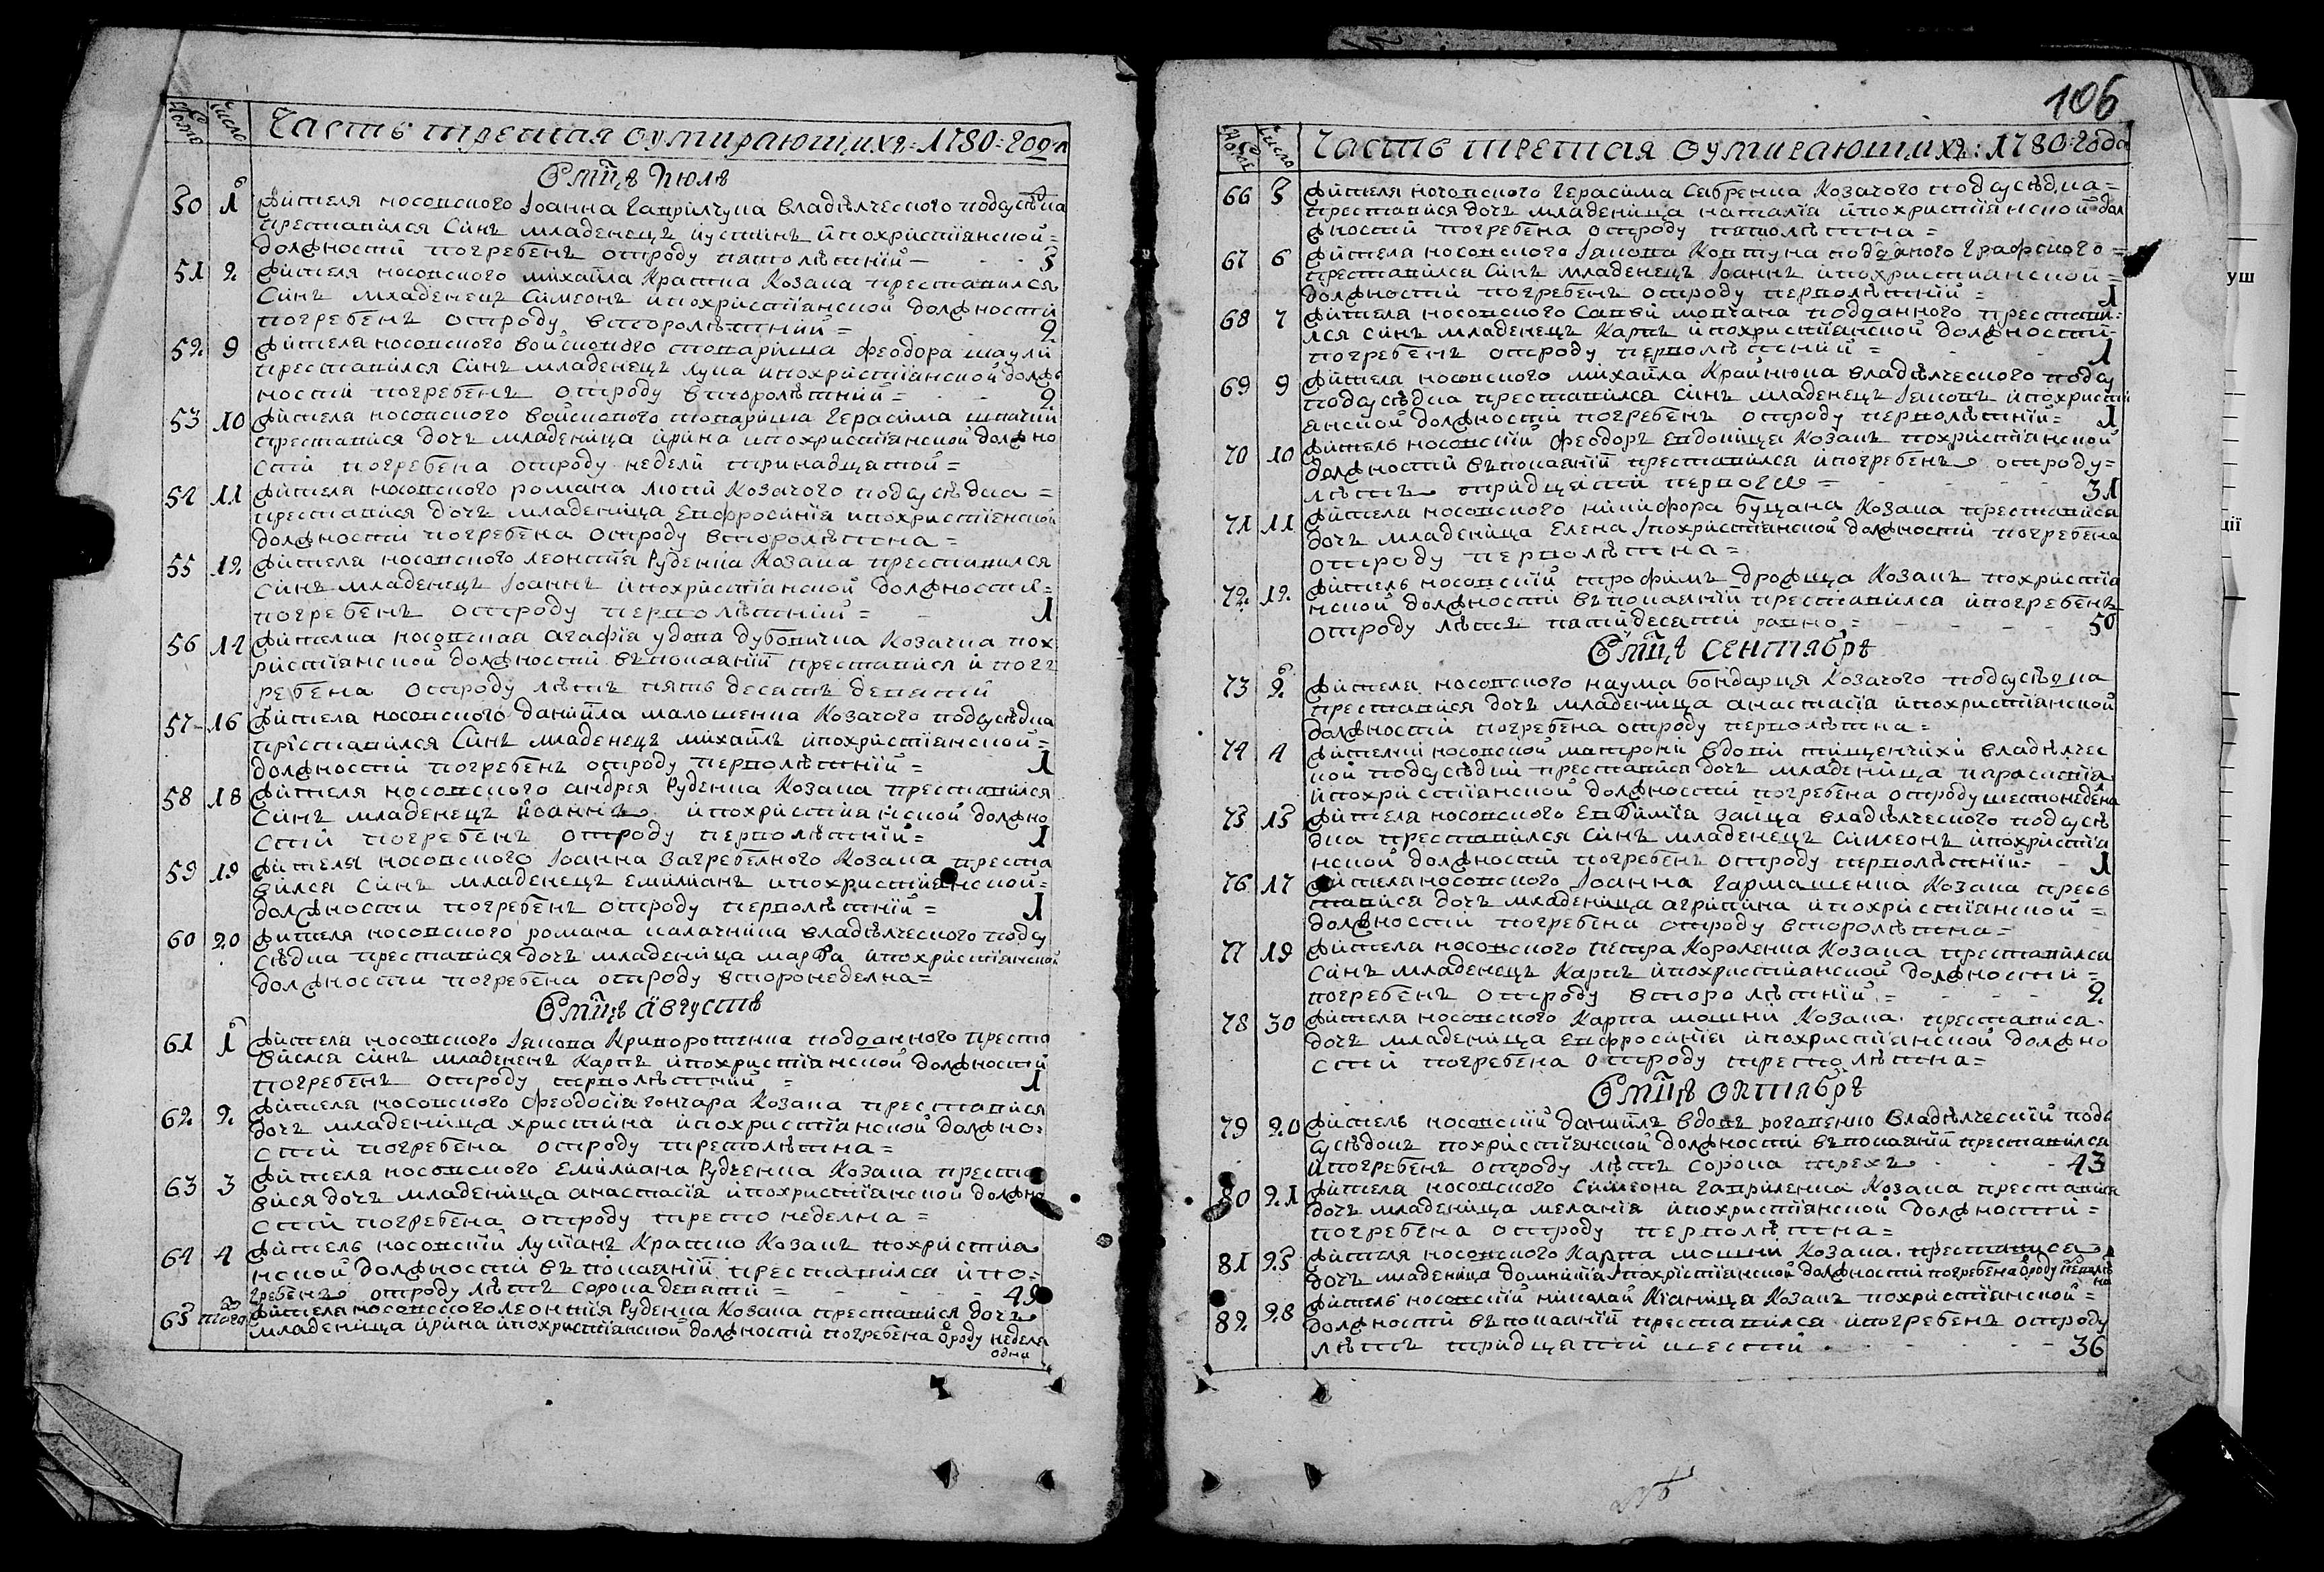 Часть третая оумирающихъ: 1780: года
Число
Вмцѣ Июлѣ
50 1 Жителя носовского Іоанна Гаврилчука владѣлческого подсусѣдка
преставился Синъ младенецъ Иустинъ и похристіанской=
должности погребенъ отроду пятолѣтній — 5
51 2 Жителя носовского михаила Кратка Козака преставился
Синъ младенецъ Симеонъ и похристіанской должности
погребенъ отроду второлѣтній = 2
52 9 Жителя носовского войскового товариша феодора шаули
преставился Синъ младенецъ Лука и похристіанской долж
ности погребенъ отроду второлѣтній = 2
53 10 Жителя носовского войскового товариша Герасима
преставися дочъ младеница ирина и похристіанской должно
сти погребена отроду недели тринадцатой =
54 11 Жителя носовского романа Козачого подсусѣдка =
преставися дочъ младеница Евфросиніа и похристіанской
должности погребена отроду второлѣтна =
55 12 Жителя носовского леонтіа Руденка Козака преставился
Синъ младенецъ Іоаннъ и похристіанской должности=
погребенъ отроду перволѣтній = 1
56 14 Жителка носовская агафіа удова дубовичка Козачка пох
ристіанской должности въ покаяніи преставися и пог
ребена отроду лѣтъ пять десятъ девятій
57 16 Жителя носовского даниила малошенка Козачого подсусѣдка
преставился Синъ младенецъ михаилъ и похристіанской =
должности погребенъ отроду перволѣтній = 1
58 18 Жителя носовского андрея Руденка Козака преставился
Синъ младенецъ Иоаннъ и похристіанской должно
сти погребенъ отроду перволѣтній = 1
59 19 Жителя носовского Іоанна Загребелного Козака преста
вился Синъ младенецъ емилианъ и похристианской=
должности погребенъ отроду перволѣтній = 1
60 20 Жителя носовского романа калачника владѣлческого подсу
сѣдка преставися дочъ младеница марѳа и похристіанской
должности погребена отроду второнеделна=
Вмцѣ Августѣ
61 1 Жителя носовского Іакова Криворотенка подданного преста
вился синъ младенецъ Карпъ и похристіанской должности
погребенъ отроду перволѣтній = 1
62 2 Жителя носовского феодосіа гончара Козака преставися
дочъ младеница христина и похристіанской должно:
сти погребена отроду третолѣтна =
63 3 Жителя носовского Емилиана Руденка Козака преста
вися дочъ младеница анастасіа и похристіанской должно
сти погребена отроду третонеделна =
64 4 Житель носовскій Лукіанъ Кратко Козакъ похристиа
нской должности въ покаяніи преставился и по=
гребенъ отроду лѣтъ сорока девяти = 49
65 Жителя носовского леонтія Руденка Козака преставися дочъ
младеница ирина и похристианской должности погребена ѿроду неделя
одна
106
Часть третая оумирающихъ: 1780: года
Число
66 5 Жителя носовского Герасима Козачого подсусѣдка=
преставися дочъ младеница наталіа и похристіанской дол
жности погребена отроду пятолѣтна =
67 6 Жителя носовского Іакова Ковтуна подданого Графского =
преставился Синъ младенецъ Іоаннъ и похристианской =
должности погребенъ отроду перволѣтній = 1
68 7 Жителя носовского Савви подданного престави:
лся синъ младенецъ Карпъ и похристіанской должности
погребенъ отроду перволѣтній = 1
69 9 Жителя носовского михаила Крайнюка владѣлческого подсу
подсусѣдка преставился синъ младенецъ Іаковъ и похристи
анской должности погребенъ отроду перволѣтній = 1
70 10 Житель носовскій феодоръ Козакъ похристіанской
должности въ покаяніи преставился и погребенъ отроду=
лѣтъ тридцяти перваго = 31
71 11 Жителя носовского никифора бущана Козака преставися
дочъ младеница Елена Іпохристіанской должности погребена
отроду перволѣтна =
72 12 Житель носовскій трофимъ дрофица Козакъ похристіа
нской должности въ покаяніи преставился и погребенъ
отроду лѣтъ пятидесяти равно = 50
Вмцѣ Сентябрѣ
73 2 Жителя носовского наума бондарця Козачого подсусѣдка
преставися дочъ младеница анастасіа и похристіанской
должности погребена отроду перволѣтна =
74 4 Жителки носовской матрони вдови тищенчихи владѣлчес
кой подсусѣдки преставися дочъ младеница параскевіа
и похристіанской должности погребена отроду шестонеделна
75 15 Жителя носовского Евѳиміа Зайца владѣлческого подсусѣ
дка преставился Синъ младенецъ Симеонъ и похристіа
нской должности погребенъ отроду перволѣтній = 1
76 17 Жителя носовского Іоанна Гармашенка Козака прес
тависа дочъ младеница агрипина и похристіанской =
должности погребена отроду второлѣтна =
77 19 Жителя носовского Петра Короленка Козака преставился
Синъ младенецъ Карпъ и похристианской должности =
погребенъ отроду второлѣтній = 2
78 30 Жителя носовского Карпа мошни Козака преставися
дочъ младеница Евфросиніа и похристианской должно
сти погребена отроду третолѣтна =
Вмцѣ Октябрѣ
79 20 Житель носовскій даниилъ вдовъ владѣлческій подъ
сусѣдокъ похристіанской должности въ покаяніи преставился
и погребенъ отроду лѣтъ сорока трехъ 43
80 21 Жителя носовского Симеона Гавриленка Козака преставися
дочъ младеница меланіа и похристіанской должности =
погребена отроду перволѣтна =
81 25 Жителя носовского Карпа мошни Козака преставися
дочъ младеница Іпохрістіанской должности погребена ѿроду перволѣт
на
82 28 Житель носовскій николай Кіаница Козакъ похристіанской =
должности въ покаяніи преставился и погребенъ отроду
лѣтъ тридцяти шести 36